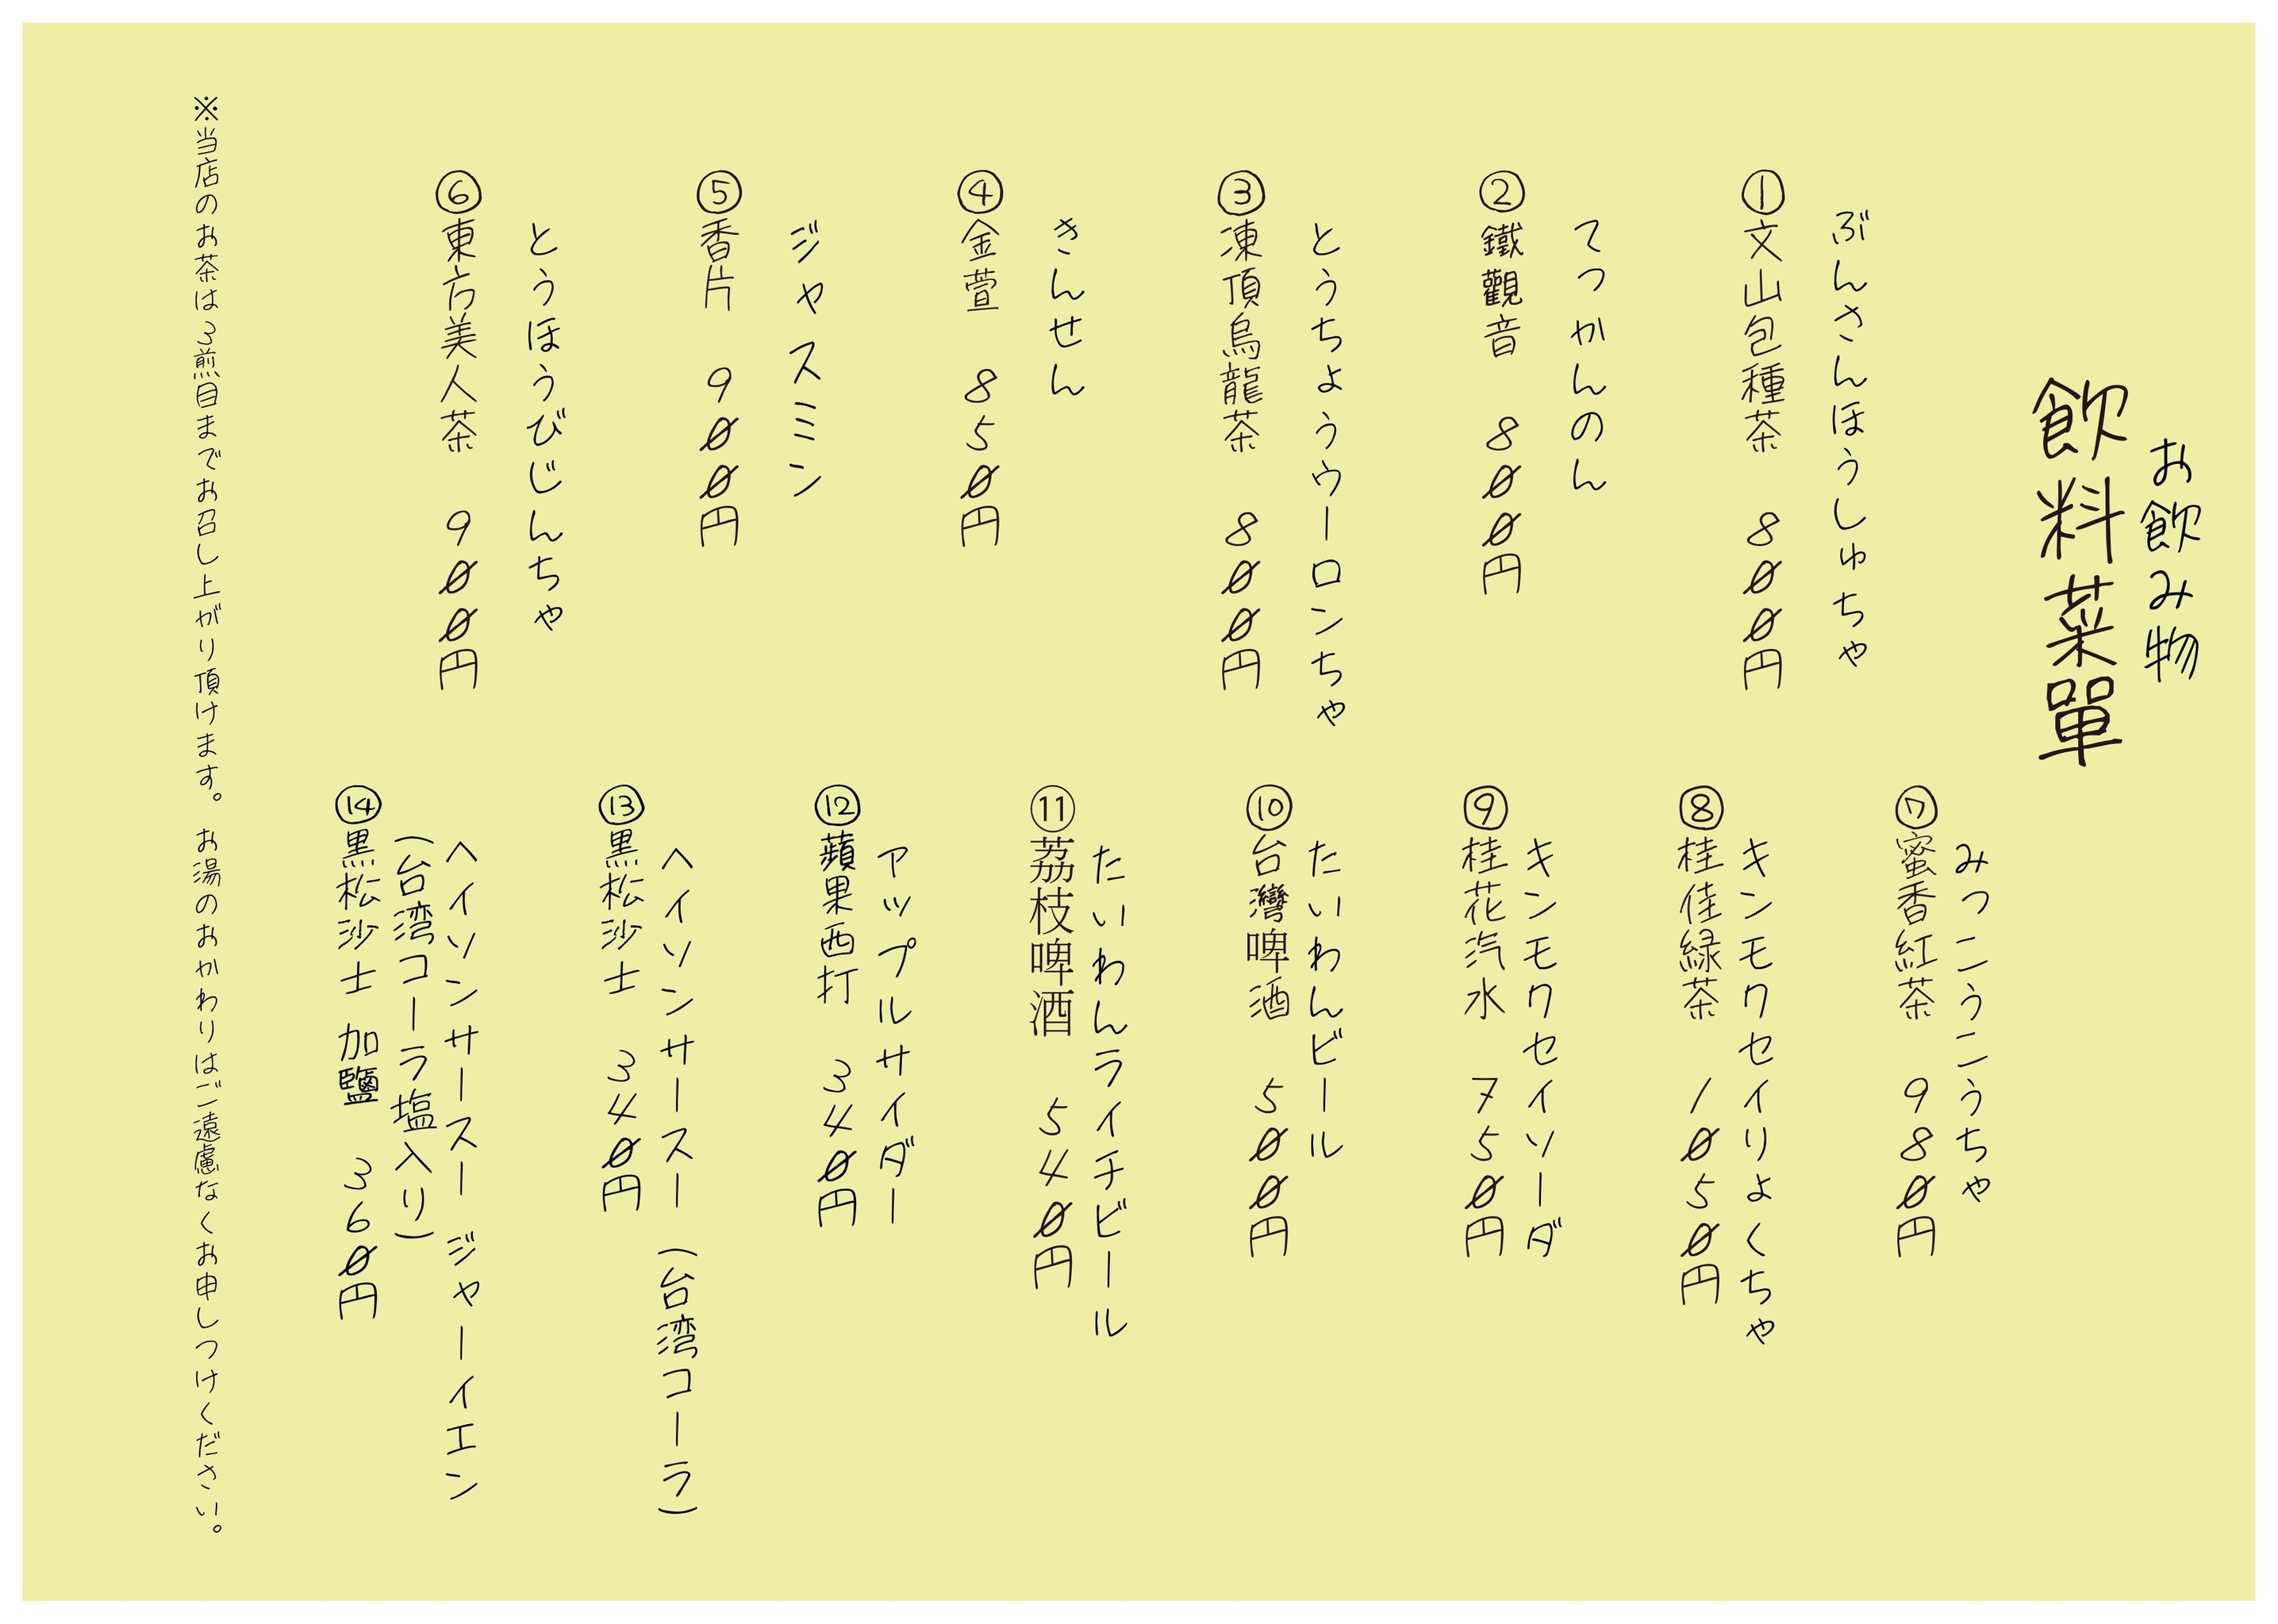 お飲み物
飲料菜單
ぶんさんほうしゅちゃ
①文山包種茶 800円
てっかんのん
②鐵觀音 800円
とうちょうウーロンちゃ
③凍頂烏龍茶 800円
きんせん
④金萱 850円
ジャスミン
⑤香片 900円
とうほうびじんちゃ
⑥東方美人茶 900円
みつこうこうちゃ
⑦蜜香紅茶 980円
キンモクセイりょくちゃ
⑧桂佳緑茶 1050円
キンモクセイソーダ
⑨桂花汽水 750円
たいわんビール
⑩台灣啤酒 500円
たいわんライチビール
⑪荔枝啤酒 540円
アップルサイダー
⑫蘋果西打 340円
ヘイソンサースー (台湾コーラ)
⑬黒松沙士 340円
ヘイソンサースー ジャーイエン
(台湾コーラ塩入り)
⑭黒松沙士 加鹽 360円
※当店のお茶は3煎目までお召し上がり頂けます。お湯のおかわりはご遠慮なくお申しつけください。